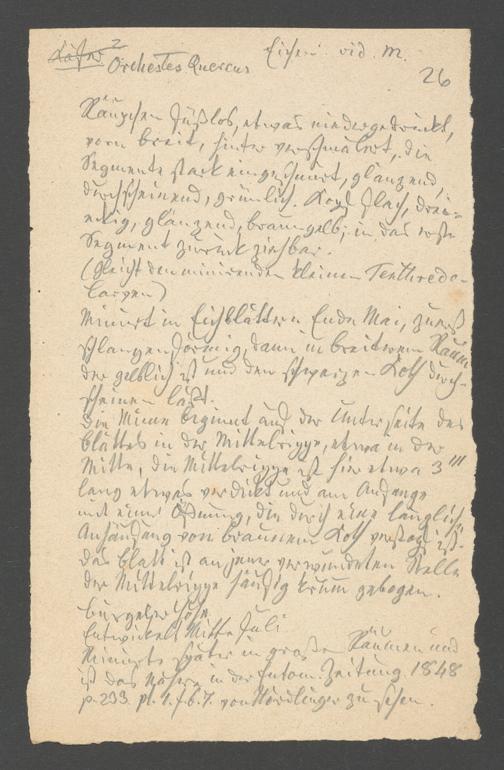 Käfer 2 Orchestes Quercus Eichen vid. m.
26
Räupchen fußlos, etwas niedergedrückt,
vorn breit, hinten verschmälert, die
Segmente stark eingeschnürt, glänzend,
durchscheinend, grünlich. Kopf flach, drei-
eckig, glänzend, braungelb; in das erste
Segment zurückziehbar.
(Gleicht den minirenden kleinen Tenthredo-
larven)
Minirt in Eichblättern Ende Mai, zuerst
schlangenförmig, dann in breiterem Raum
der gelblich ist und den schwarzen Koth durch-
scheinen läßt.
Die Mine beginnt auf der Unterseite des
Blattes in der Mittelrippe, etwa in der
Mitte, die Mittelrippe ist hier etwa 3'''
lang etwas verdickt und am Anfange
mit einer Öffnung, die durch eine längliche
Anhäufung von braunem Koth verstopft ist.
Das Blatt ist an jener verwundeten Stelle
der Mittelrippe häufig krum gebogen.
Entwickelt Mitte Juli
Minirt später in große Räumen und
ist das Nähere in der Entom. Zeitung 1848
p. 233. pl. 1. f. 6. 7. von Nördlinger zu sehen.